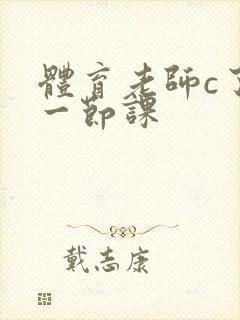 體育老師c了
一節課
戴志康